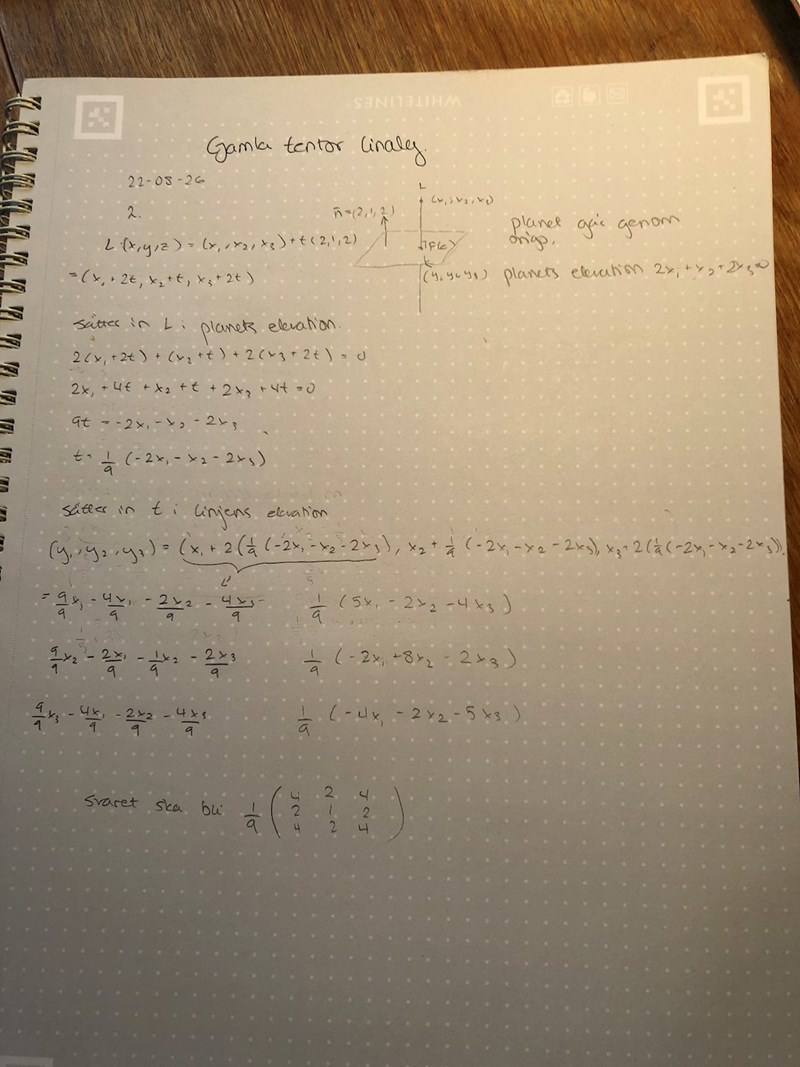 WHITELINES®
Gamla tentor linalg.
22-08-26
2.
L
(x₁, x₂, x₃)
n̄=(2,1,2)
planet går genom
origo.
L:(x,y,z) = (x₁, x₂, x₃) + t(2,1,2)
F(x)
(y₁, y₂, y₃)
planets ekvation 2x₁+x₂+2x₃=0
=(x₁+2t, x₂+t, x₃+2t)
sätter in L i planets ekvation.
2(x₁+2t) + (x₂+t) + 2(x₃+2t) = 0
2x₁ + 4t + x₂ + t + 2x₃ + 4t = 0
9t = -2x₁ - x₂ - 2x₃
t = 1/9 (-2x₁ - x₂ - 2x₃)
sätter in t i linjens ekvation
(y₁, y₂, y₃) = (x₁ + 2(1/9(-2x₁ - x₂ - 2x₃), x₂ + 1/9 (-2x₁ - x₂ - 2x₃), x₃ - 2(1/9(-2x₁ - x₂ - 2x₃)).
= 9/9 x₁ - 4x₁/9 - 2x₂/9 - 4x₃/9 1/9 (5x₁ - 2x₂ - 4x₃)
9/9 x₂ - 2x₁/9 - 1/9 x₂ - 2x₃/9 1/9 (-2x₁ + 8x₂ - 2x₃)
9/9 x₃ - 4x₁/9 - 2x₂/9 - 4x₃/9 1/9 (-4x₁ - 2x₂ - 5x₃)
svaret ska bli 1/9 (
4 2 4
2 1 2
4 2 4
)